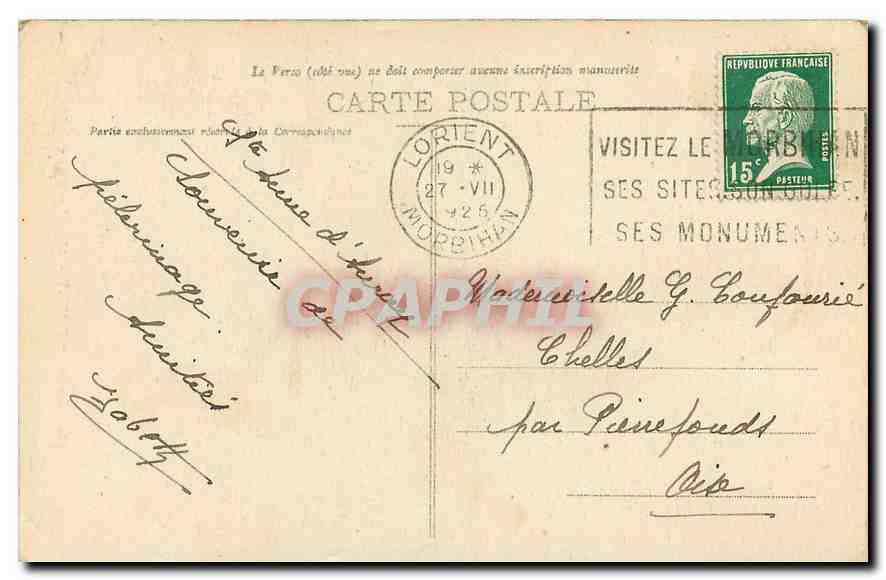 Le Verso (côté vue) ne doit comporter aucune inscription manuscrite
CARTE POSTALE
Partie exclusivement réservée à la Correspondance
LORIENT
19 *
27 · VII
1925
MORBIHAN
VISITEZ LE MORBIHAN
SES SITES, SON GOLFE,
SES MONUMENTS
REPVBLIQUE FRANÇAISE
POSTES
15c
PASTEUR
Ste Anne d'Auray
Souvenir de
pélerinage.
Amitiés
Mademoiselle G.
Chelles
par Pierrefonds
Oise
CPAPHIL